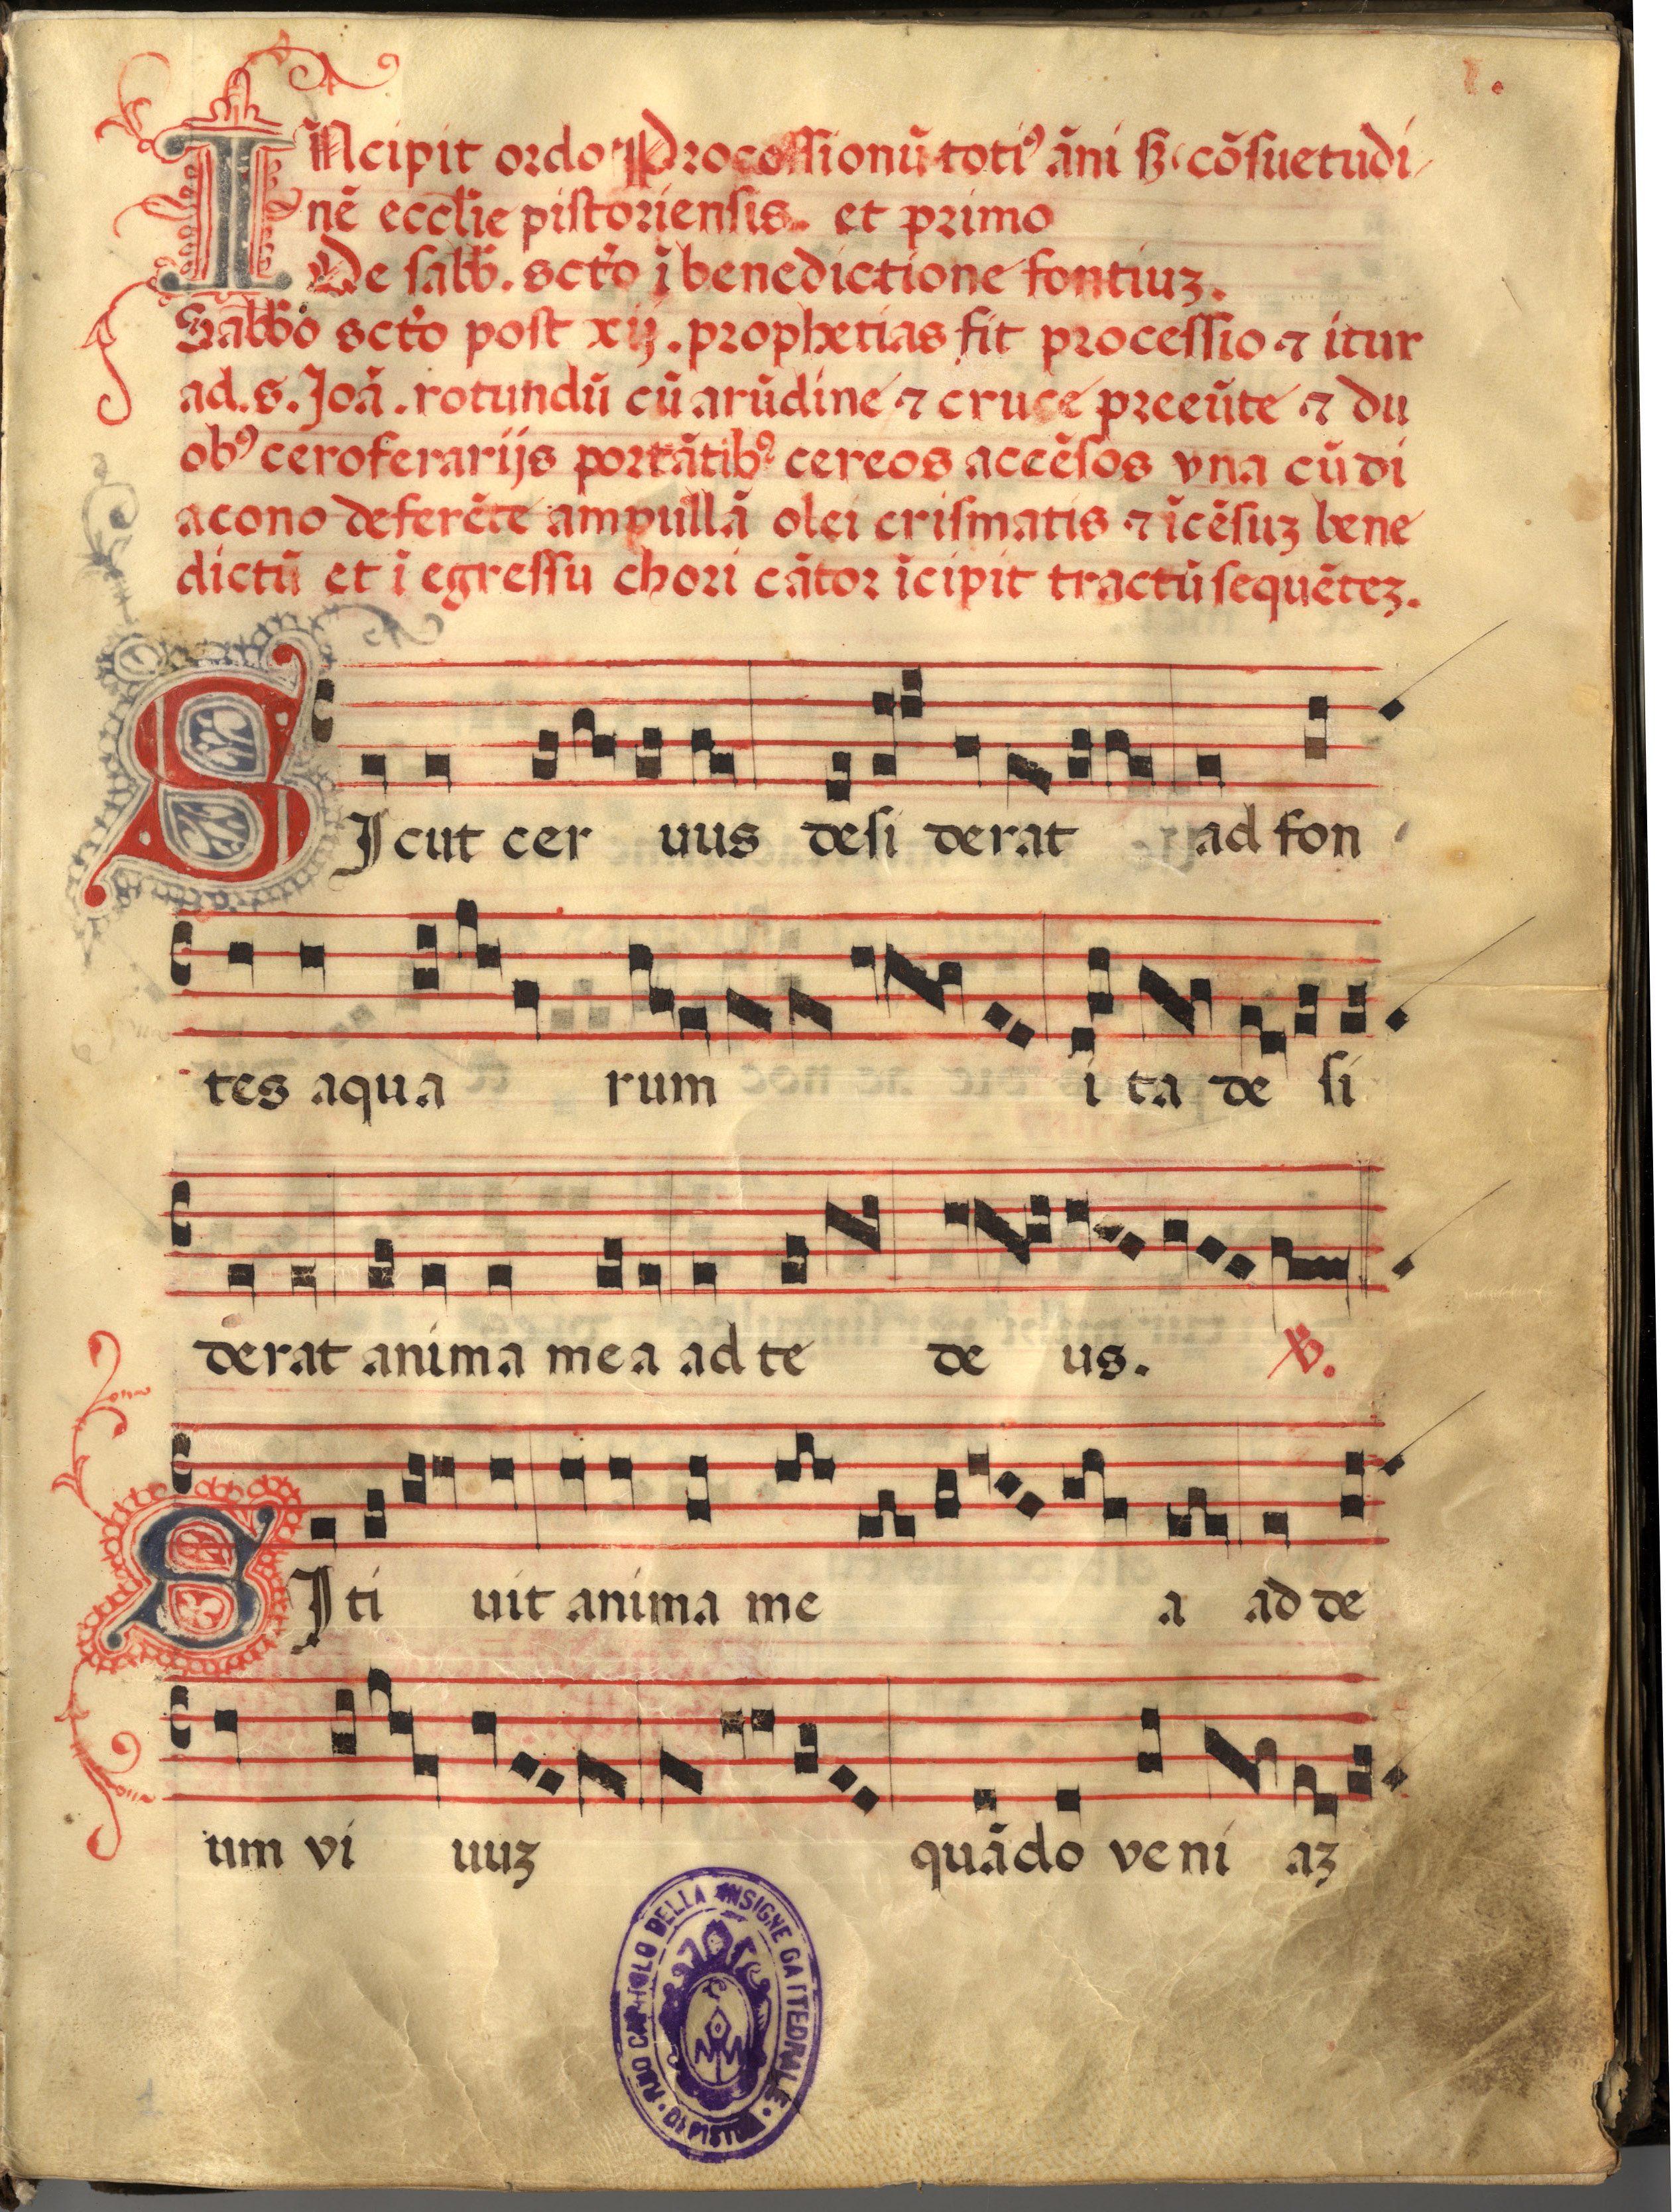 I.
INcipit ordo Processionũ toti⁹ ãni ẜʒ cõſuetudi
nẽ eccl̃ie piſtorienſis. et primo
De ſabb̃. sct̃o ĩ benedictione fontiuʒ.
Sabb̃o sct̃o poſt xij. prophetias fit proceſſio ⁊ itur
ad. s. Joã. rotundũ cũ arũdine ⁊ cruce preeũte ⁊ du
ob⁹ ceroferarijs portãtib⁹ cereos accẽſos vna cũ di
acono deferẽte ampullã olei criſmatis ⁊ ĩcẽſuʒ bene
dictũ et ĩ egreſſu chori cãtor ĩcipit tractũ ſequẽteʒ.
SIcut cer uus deſi derat ad fon
tes aqua rum i ta de ſi
derat anima mea ad te de us. ℣.
SIti uit anima me a ad de
um vi uuʒ quãdo veni aʒ
CAPITOLO DELLA INSIGNE CATTEDRALE
1